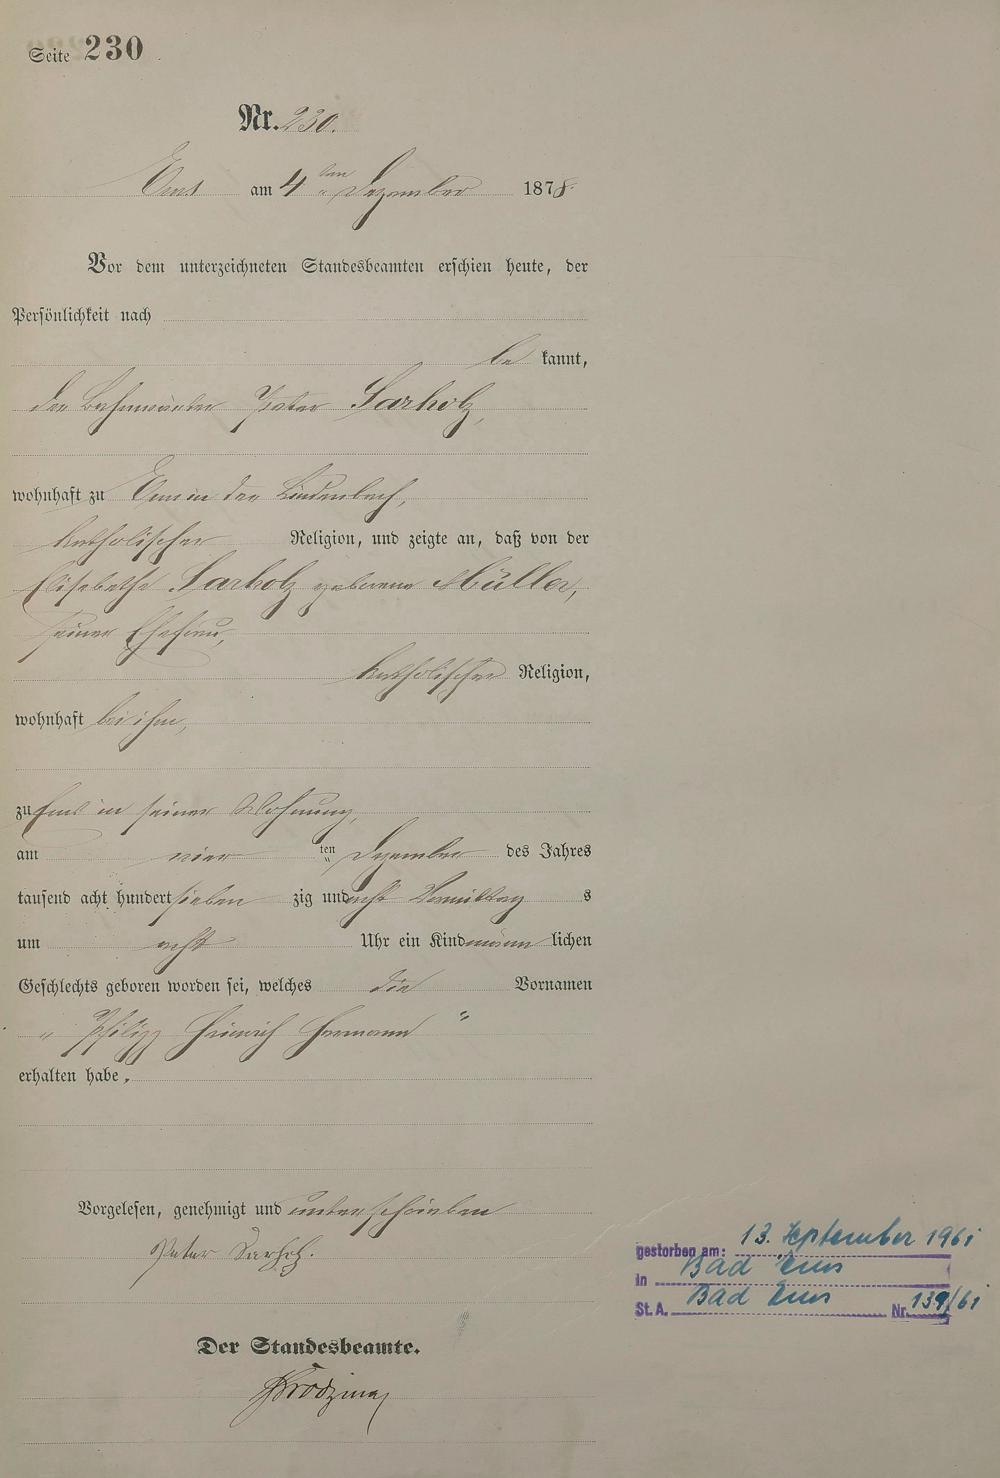 Seite 230
Nr. 230.
Ems am 4 ten Dezember 1878
Vor dem unterzeichneten Standesbeamten erschien heute, der
Persönlichkeit nach
be kannt,
der Bahnwärter Peter Sarholz,
wohnhaft zu Ems in der Lindenbach,
katholischer Religion, und zeigte an, daß von der
Elisabetha Sarholz geborene Müller,
seiner Ehefrau,
katholischer Religion,
wohnhaft bei ihm,
zu Ems in seiner Wohnung,
am vier ten Dezember des Jahres
tausend acht hundert sieben zig und acht Vormittag s
um acht Uhr ein Kind männ lichen
Geschlechts geboren worden sei, welches die Vornamen
„ Philipp Heinrich Hermann “
erhalten habe.
Vorgelesen, genehmigt und unterschrieben
Peter Sarholz.
Der Standesbeamte.
gestorben am: 13. September 1961
in Bad Ems
St. A. Bad Ems Nr. 139/61